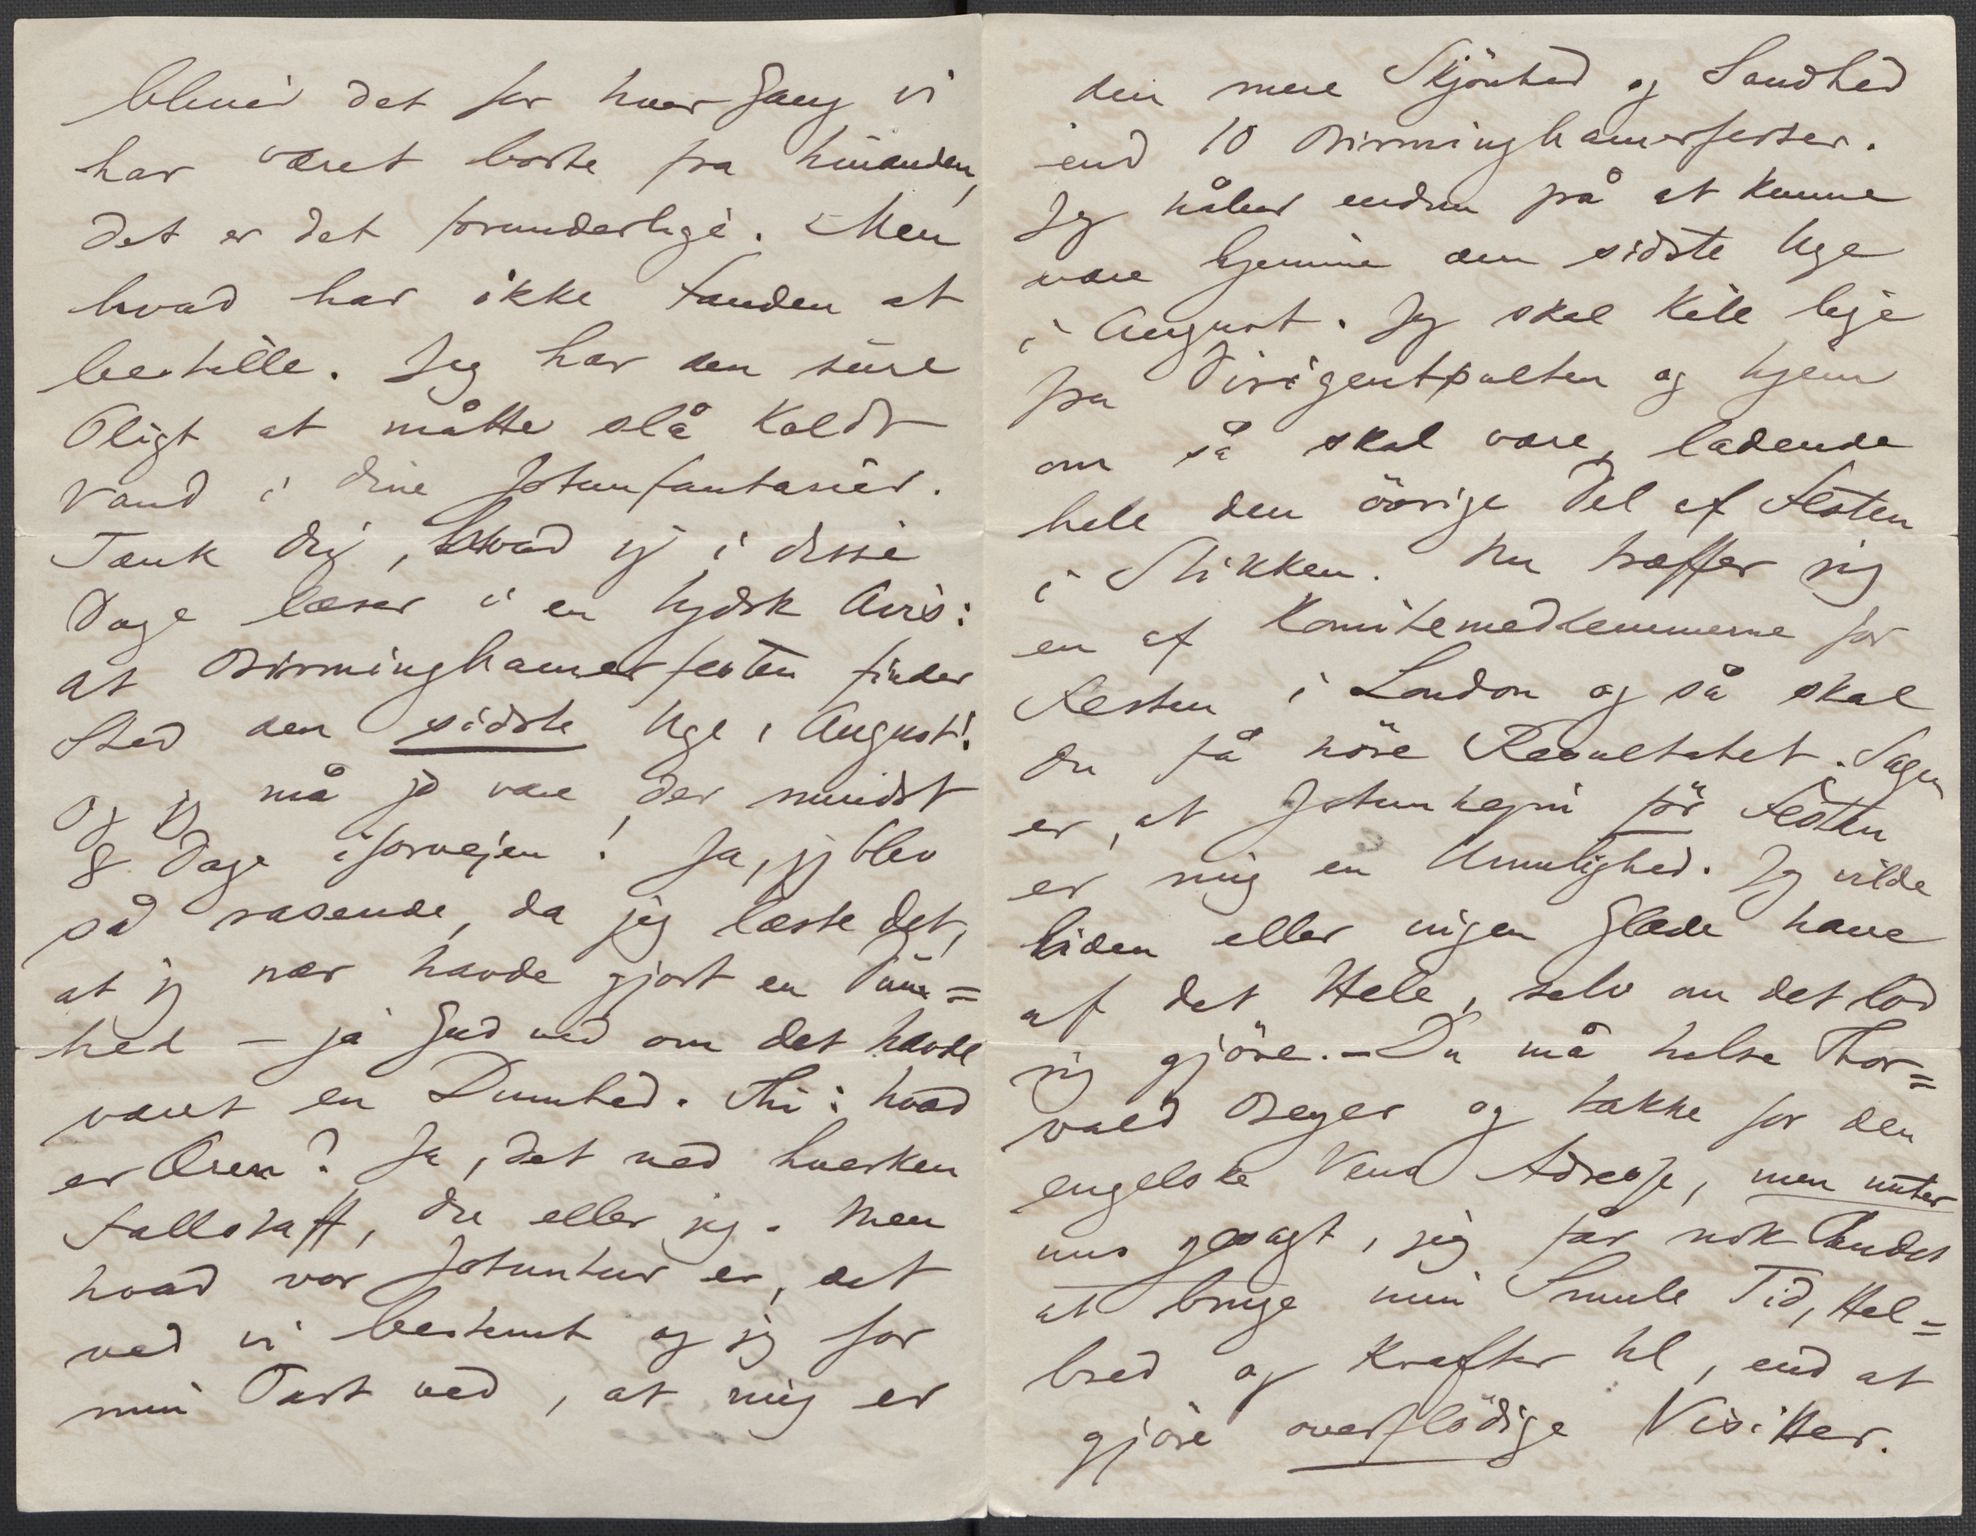 bliver det for hver Gang vi
har været borte fra hinanden,
det er det forunderlige. Men
hvad har ikke Fanden at
bestille. Jeg har den sure
Pligt at måtte slå Koldt
Vand i dine Jotunfantasier.
Tænk dig, hvad jeg i disse
Dage læser i en tydsk Avis:
at Birminghamerfesten finder
Sted den sidste Uge i August!
Og jeg må jo være der mindst
8 Dage iforvejen! Ja, jeg blev
så rasende, da jeg læste det,
at jeg nær havde gjort en Dum=
hed – ja Gud ved om det havde
været en Dumhed. Thi: hvad
er Æren? Ja, det ved hverken
Fallstaff, du eller jeg. Men
hvad vor Jotuntur er, det
ved vi bestemt og jeg for
min Part ved, at mig er
den mere Skjönhed og Sandhed
end 10 Birminghamerfester.
Jeg håber endnu på at kunne
være hjemme den sidste Uge
i August. Jeg skal kile lige
fra Dirigentpulten og hjem
om så skal være, ladende
hele den övrige Del af Festen
i Stikken. Nu træffer jeg
en af Komitemedlemmerne for
Festen i London og så skal
du få höre Resultatet. Sagen
er, at Jotunhejm för Festen
er mig en Umulighed. Jeg vilde
liden eller ingen Glæde have
af det Hele, selv om det lod
sig gjöre. – Du må hilse Thor=
vald Beyer og takke for den
engelske Vens Adresse, men unter
uns gesagt, jeg får nok Andet
at bruge min Smule Tid, Hel=
bred og Kræfter til, end at
gjöre overflödige Visitter.